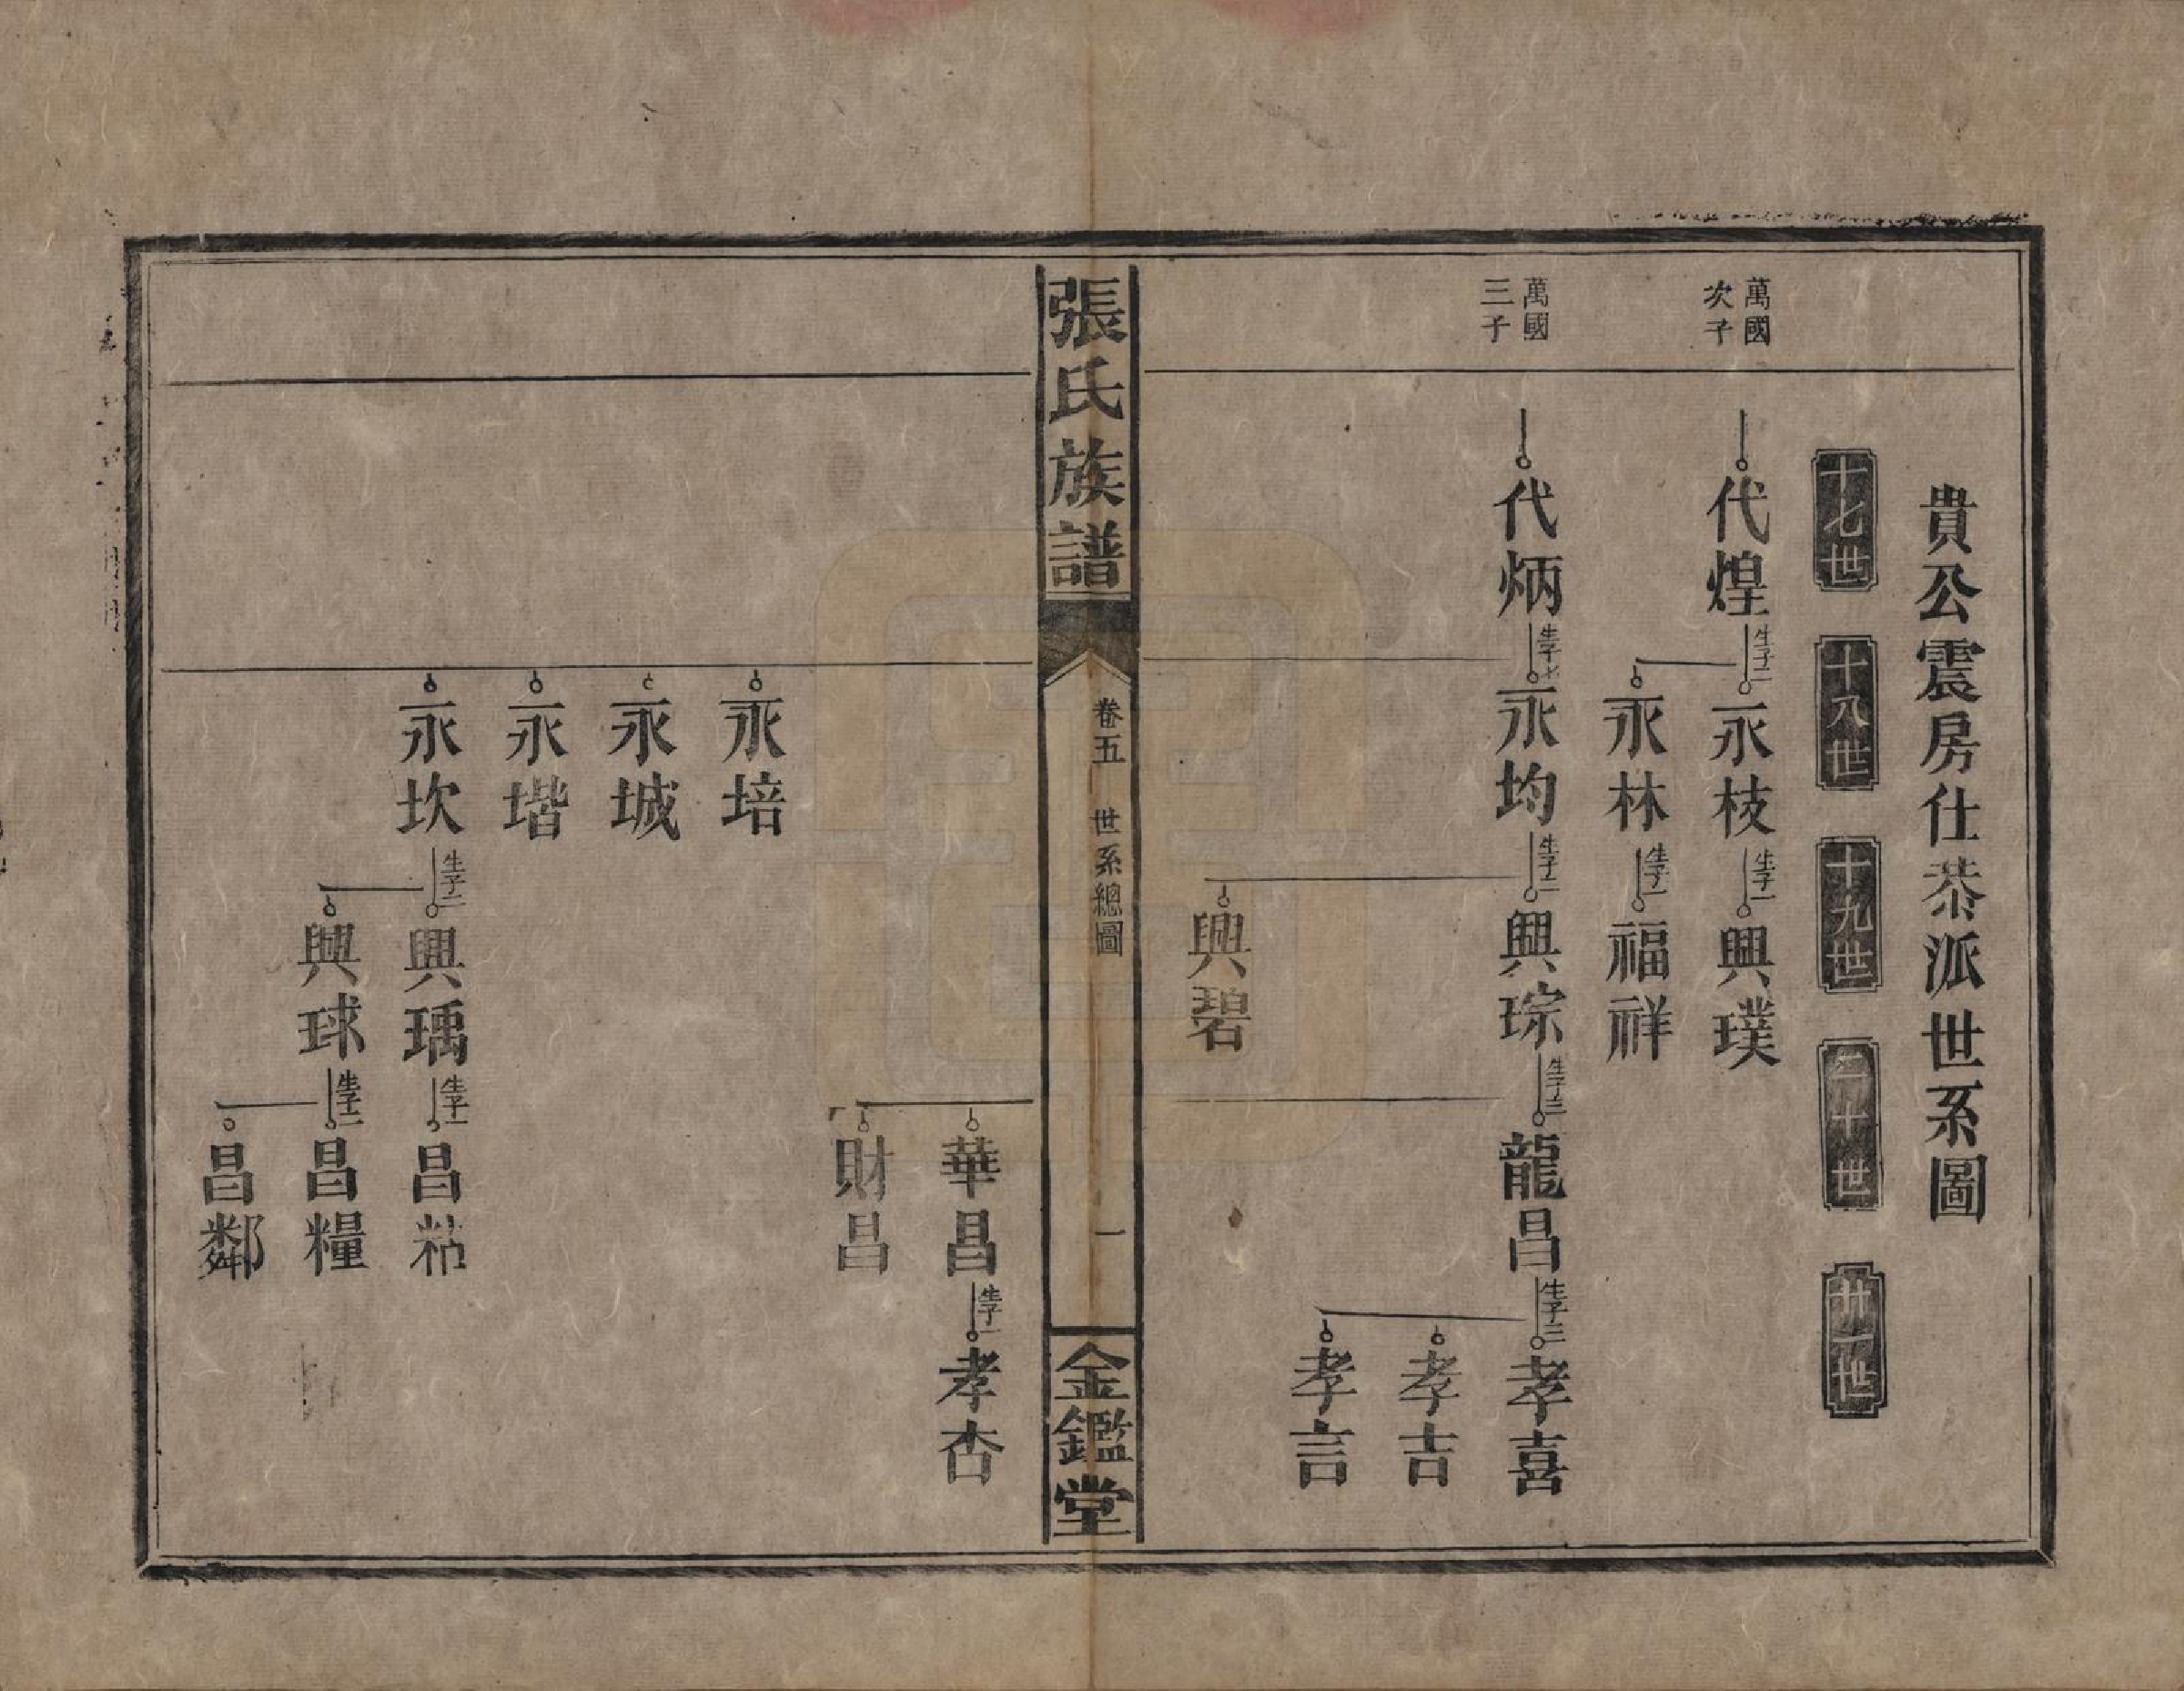 貴公震房仕恭派世系圖
十七世
十八世
十九世
二十世
廿一世
萬國
次子
代煌
生子二
永枝
生子一
興璞
永林
生子一
福祥
萬國
三子
代炳
生子七
永均
生子二
興琮
生子三
龍昌
生子三
孝喜
孝吉
孝言
興碧
張氏族譜
卷五
世系總圖
一
金鑑堂
華昌
生子一
孝杏
財昌
永培
永城
永堦
永坎
生子二
興瑀
生子一
昌粘
興球
生子二
昌糧
昌鄰